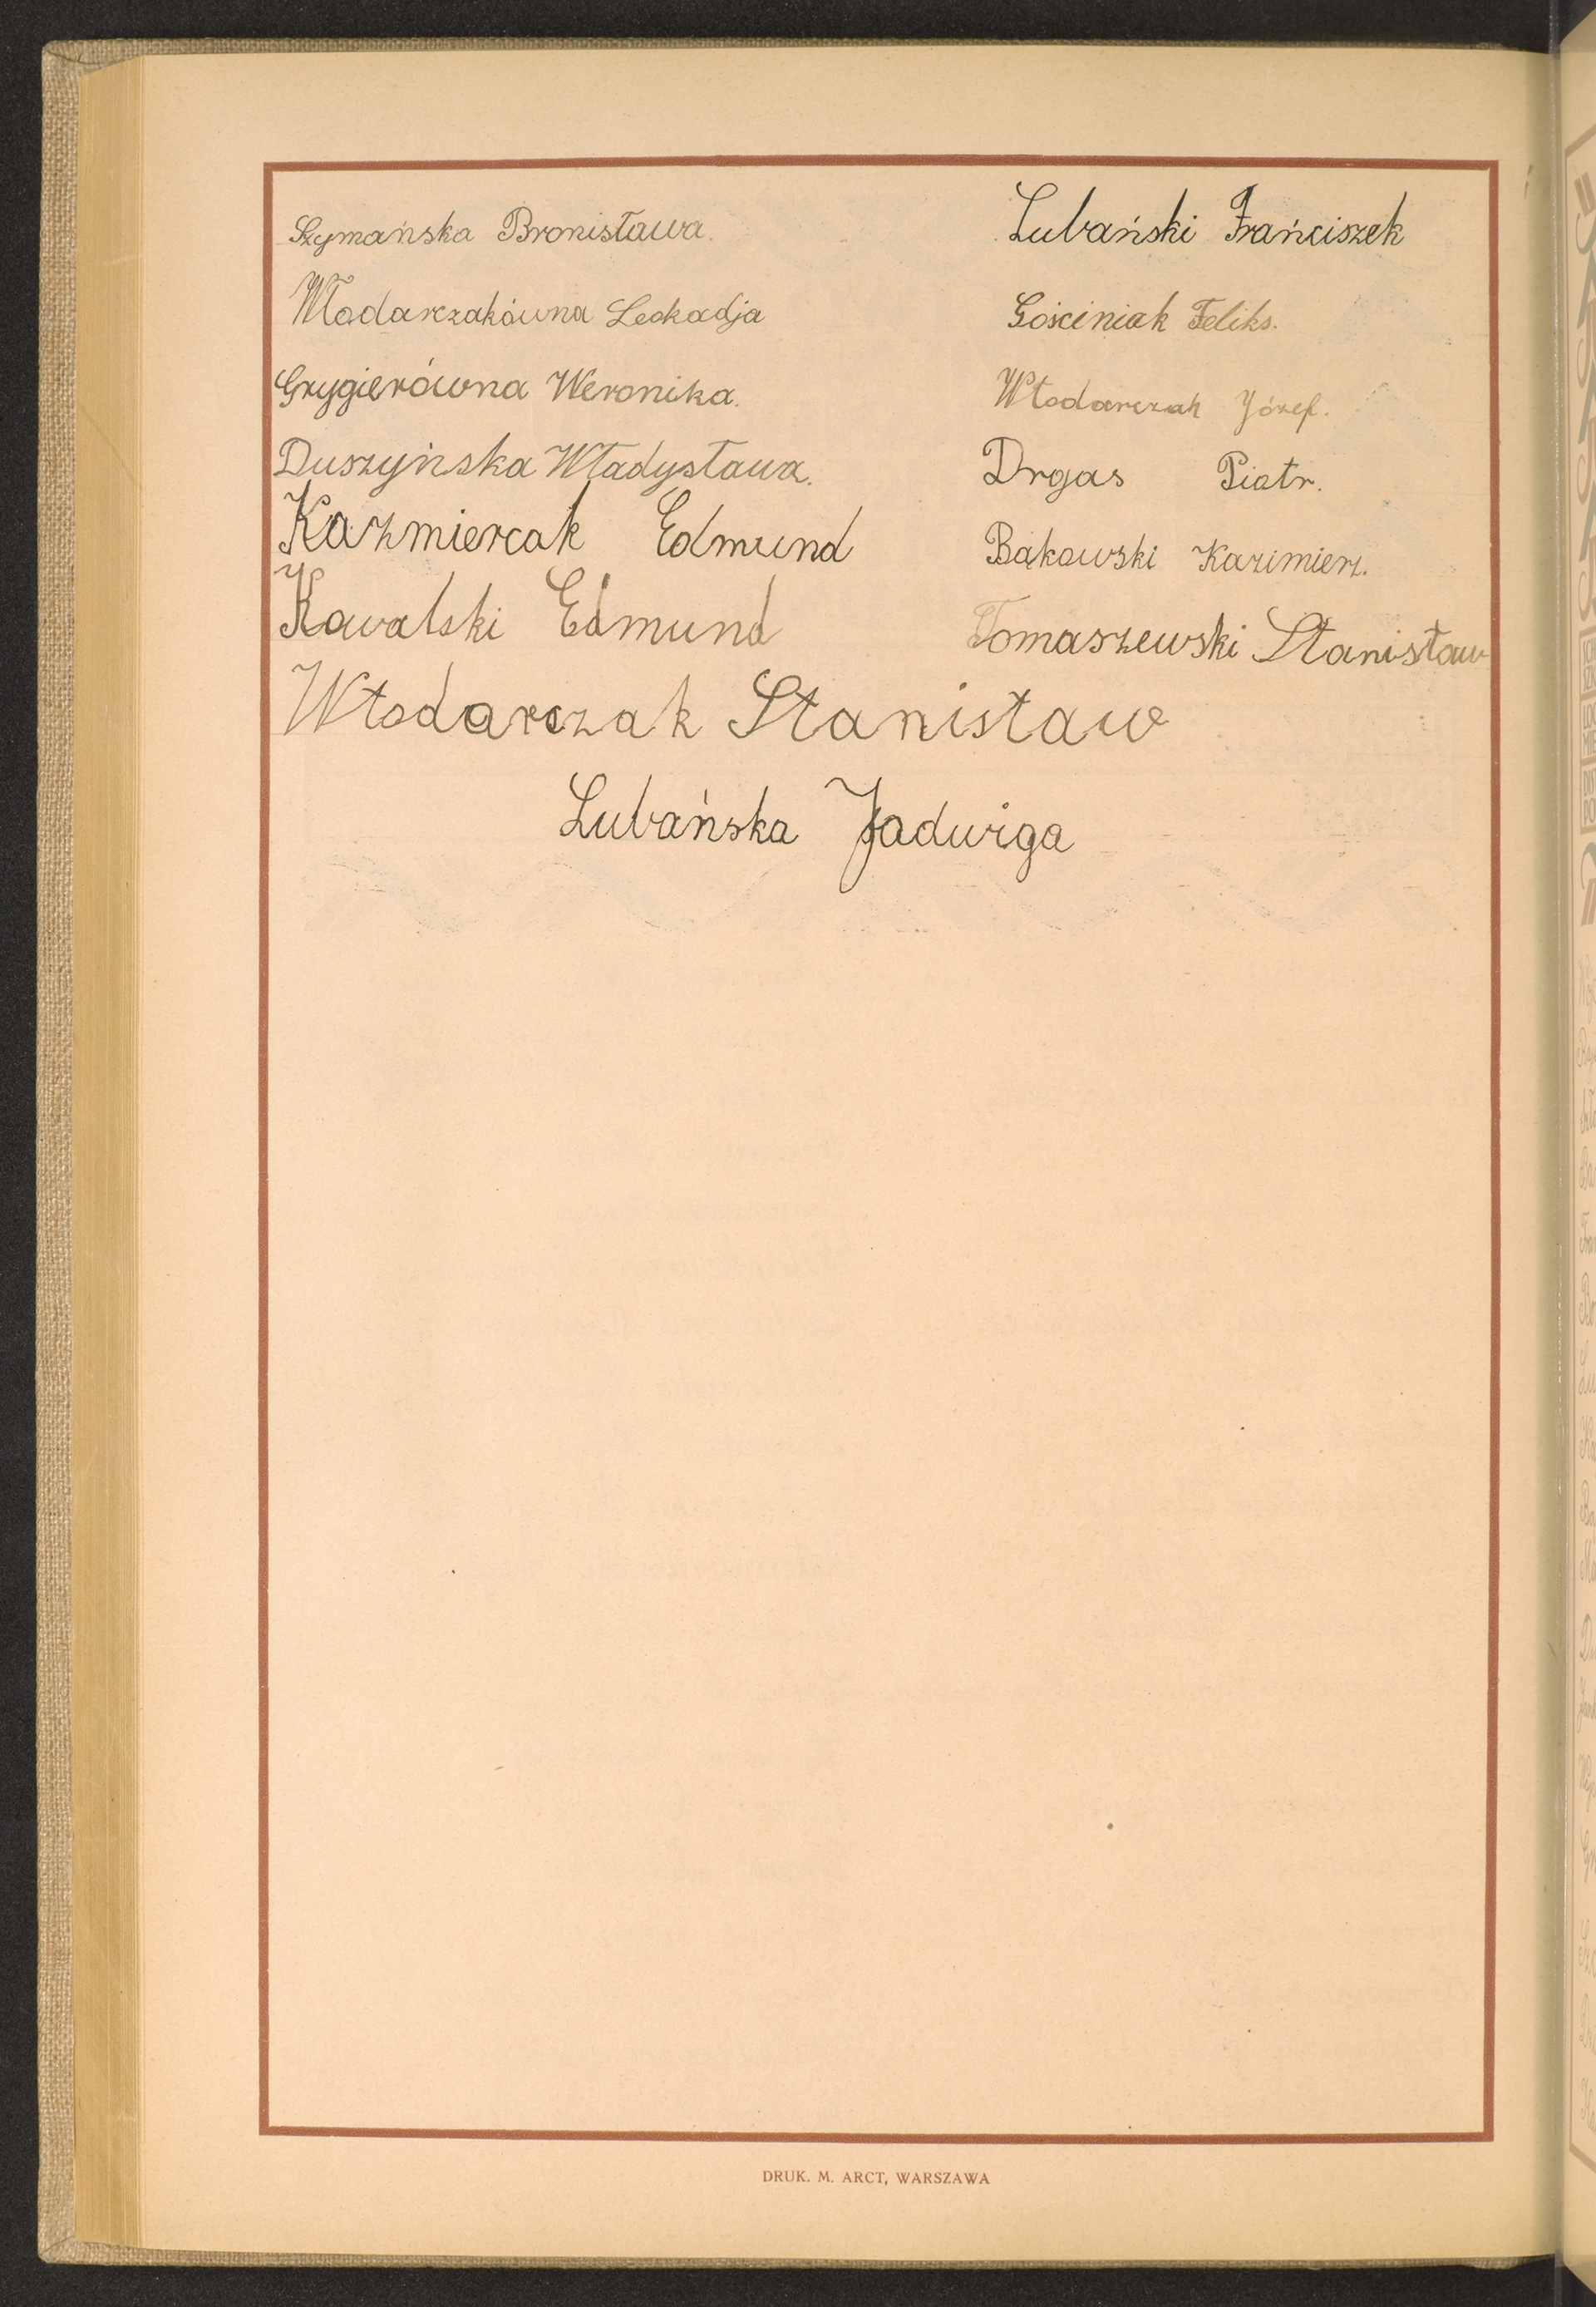 Szymańska Bronisława.
Włodarczakówna Leokadja
Grygierówna Weronika.
Duszyńska Władysława.
Kazmiercak Edmund
Kowalski Edmund
Włodarczak Stanisław
Lubański Frańciszek
Gościniak Feliks.
Włodarczak Józef.
Drgas Piotr.
Bąkowski Kazimierz.
Tomaszewski Stanisław
Lubańska Jadwiga
DRUK. M. ARCT, WARSZAWA